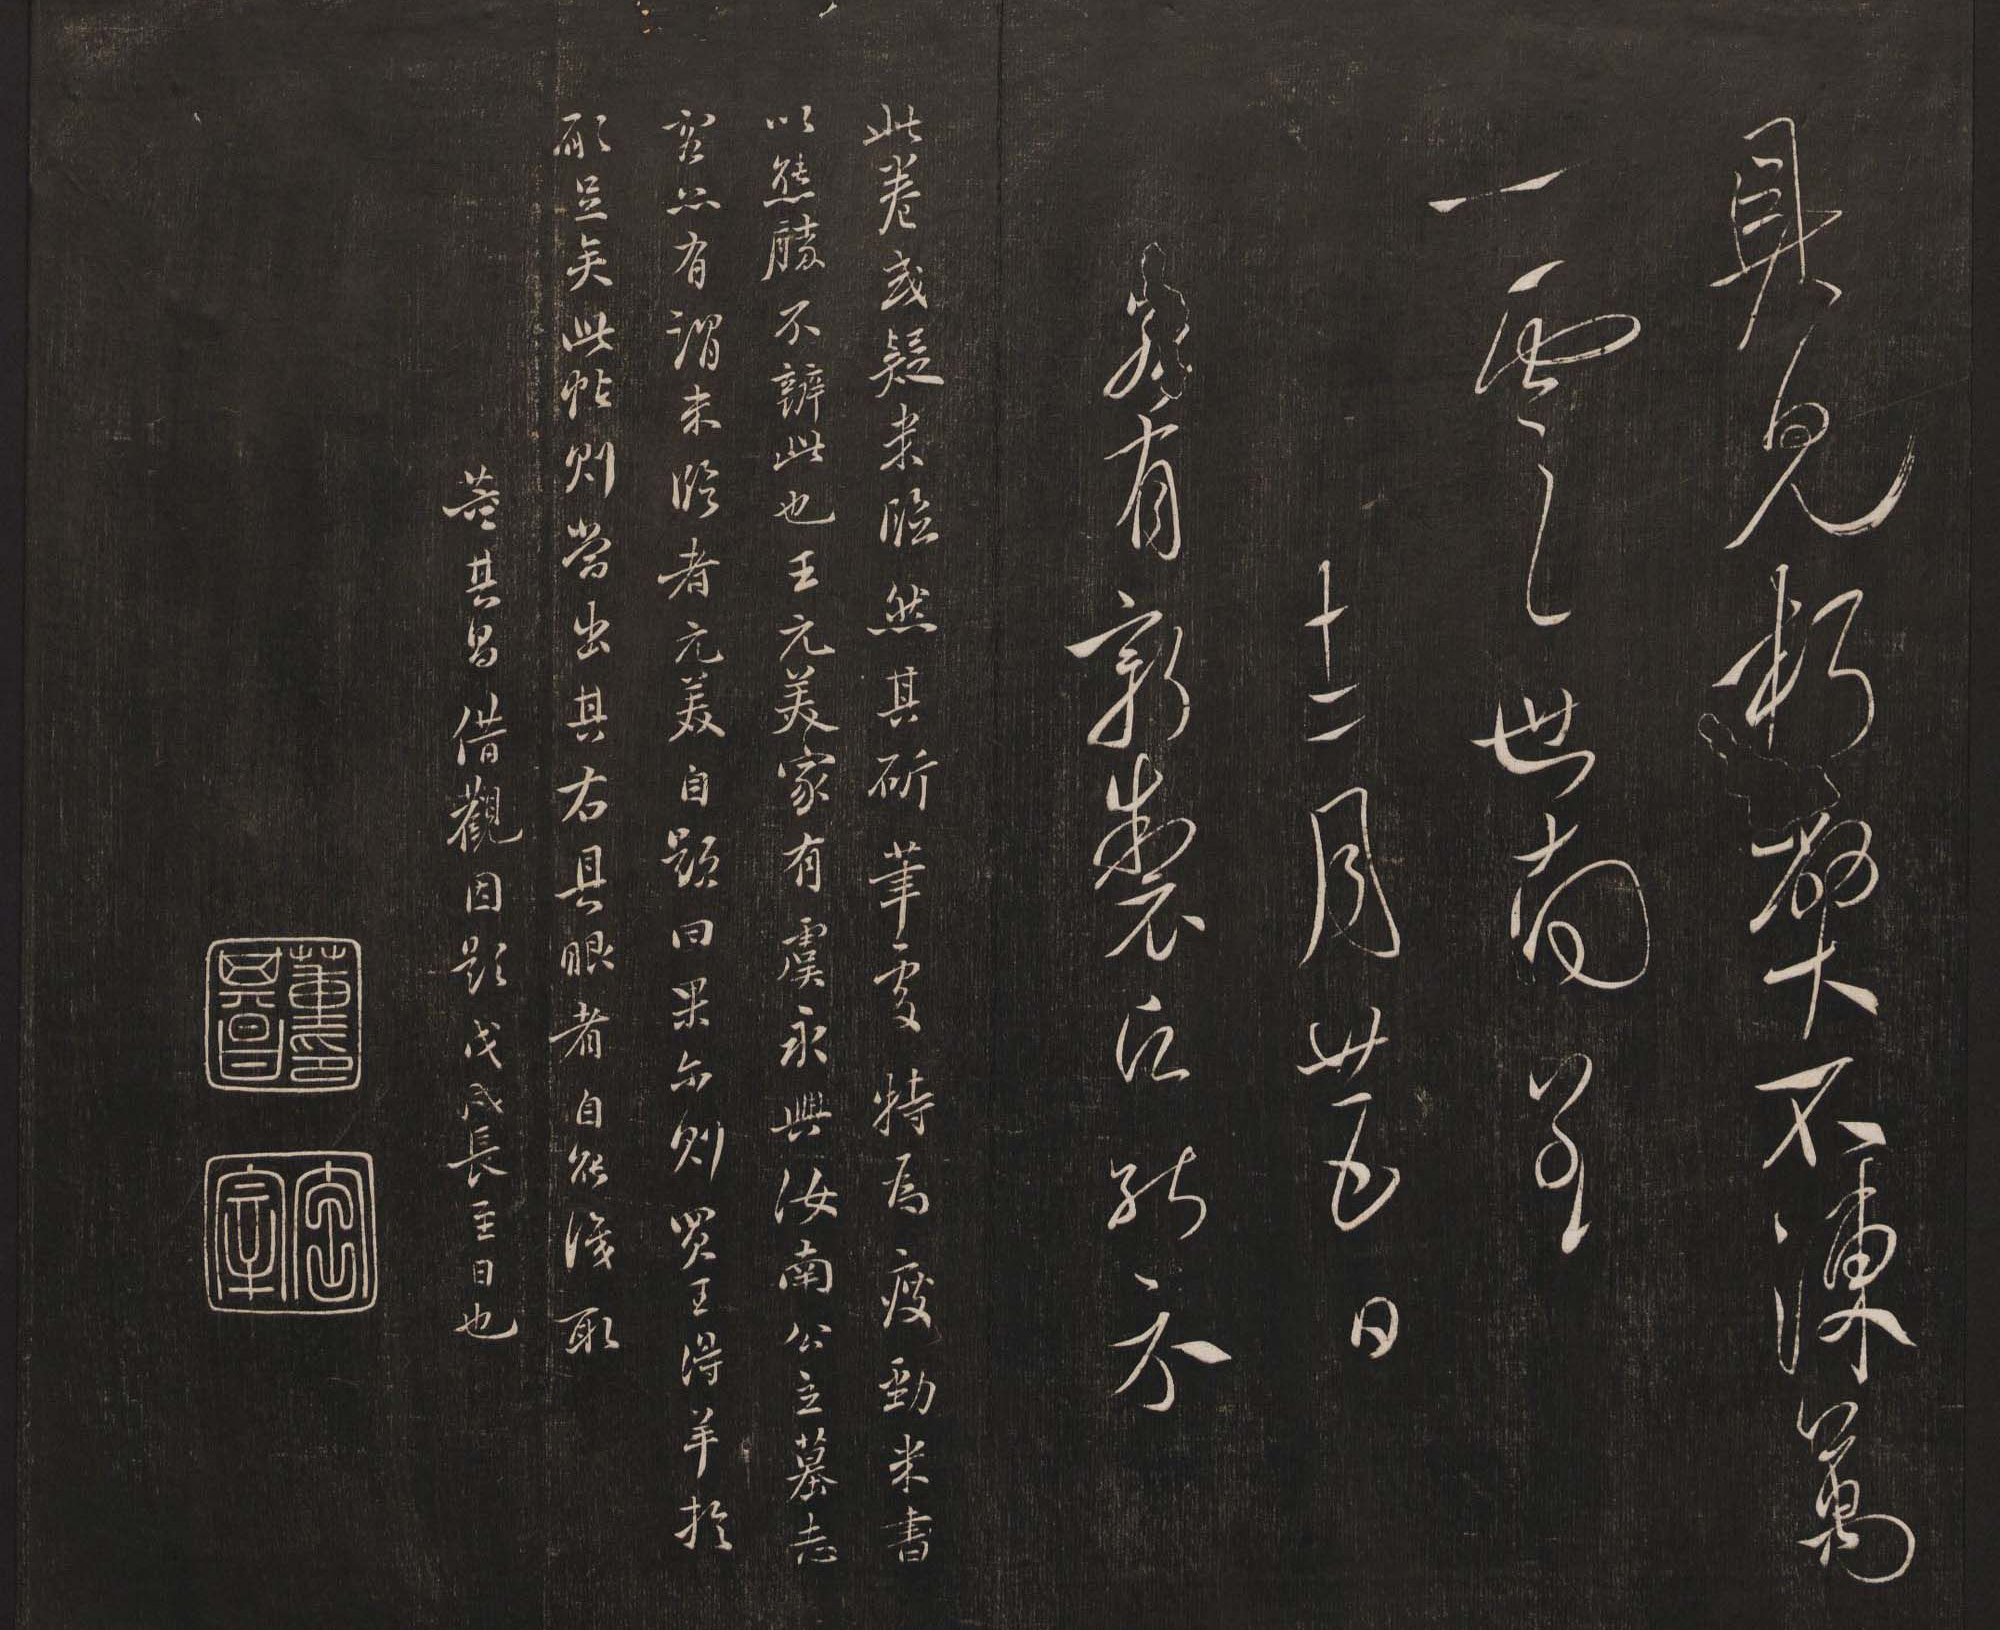 具見新髮大不凍萬
一一雲之世南呈
十二月廿五日
翁有新製心能不
此卷或疑米臨然其斫筆處特爲瘦勁米書
以態勝不辨此也王元美家有虞永興汝南公主墓志
豁然有謂米臨者元美自題曰果尔則買王得羊於
願足矣此帖則當出其右具眼者自能識取
董其昌借觀因題戊戌長至日也
董其昌印
玄宰